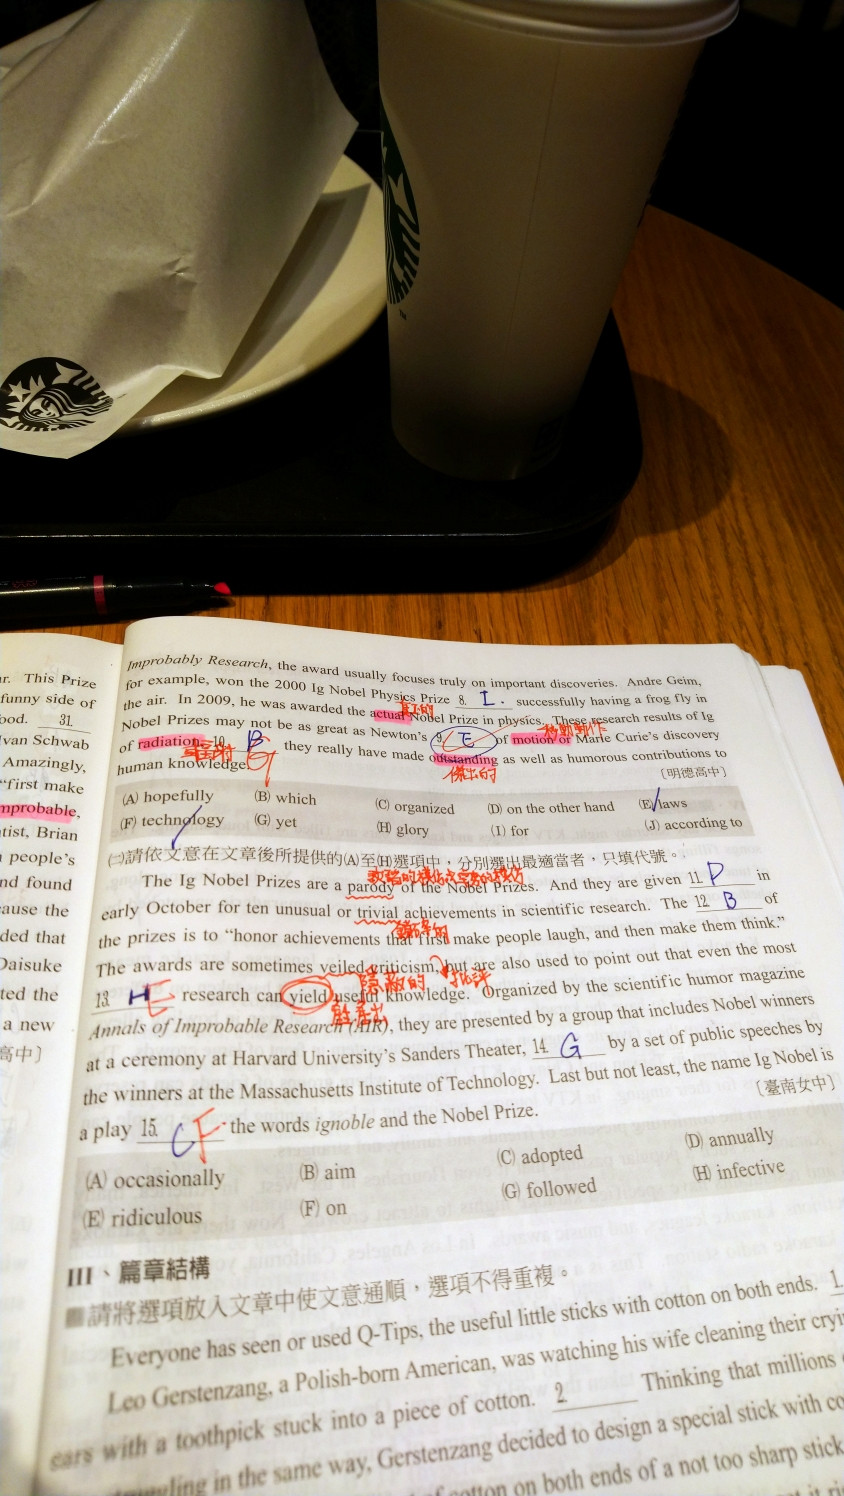 r. This Prize
funny side of
ood. 31.
Ivan Schwab
Amazingly,
"first make
mprobable,
tist, Brian
people's
nd found
ause the
ded that
Daisuke
ted the
a new
高中〕
Improbably Research, the award usually focuses truly on important discoveries. Andre Geim,
for example, won the 2000 Ig Nobel Physics Prize 8. I. successfully having a frog fly in
the air. In 2009, he was awarded the actual Nobel Prize in physics. These research results of Ig
真正的
Nobel Prizes may not be as great as Newton's 9. E of motion or Marie Curie's discovery
of radiation, 10. B G they really have made outstanding as well as humorous contributions to
傑出的
human knowledge.
〔明德高中〕
(A) hopefully (B) which (C) organized (D) on the other hand (E) laws
(F) technology (G) yet (H) glory (I) for (J) according to
㈡請依文意在文章後所提供的(A)至(H)選項中，分別選出最適當者，只填代號。
The Ig Nobel Prizes are a parody of the Nobel Prizes. And they are given 11. D in
early October for ten unusual or trivial achievements in scientific research. The 12. B of
the prizes is to "honor achievements that first make people laugh, and then make them think."
The awards are sometimes veiled criticism, but are also used to point out that even the most
隱蔽的 批評
13. H E research can yield useful knowledge. Organized by the scientific humor magazine
Annals of Improbable Research (AIR), they are presented by a group that includes Nobel winners
at a ceremony at Harvard University's Sanders Theater, 14. G by a set of public speeches by
the winners at the Massachusetts Institute of Technology. Last but not least, the name Ig Nobel is
a play 15. C F the words ignoble and the Nobel Prize.
〔臺南女中〕
(A) occasionally (B) aim (C) adopted (D) annually
(E) ridiculous (F) on (G) followed (H) infective
III、篇章結構
■請將選項放入文章中使文意通順，選項不得重複。
Everyone has seen or used Q-Tips, the useful little sticks with cotton on both ends. 1.
Leo Gerstenzang, a Polish-born American, was watching his wife cleaning their cryi
ears with a toothpick stuck into a piece of cotton. 2 Thinking that millions
in the same way, Gerstenzang decided to design a special stick with co
cotton on both ends of a not too sharp stick